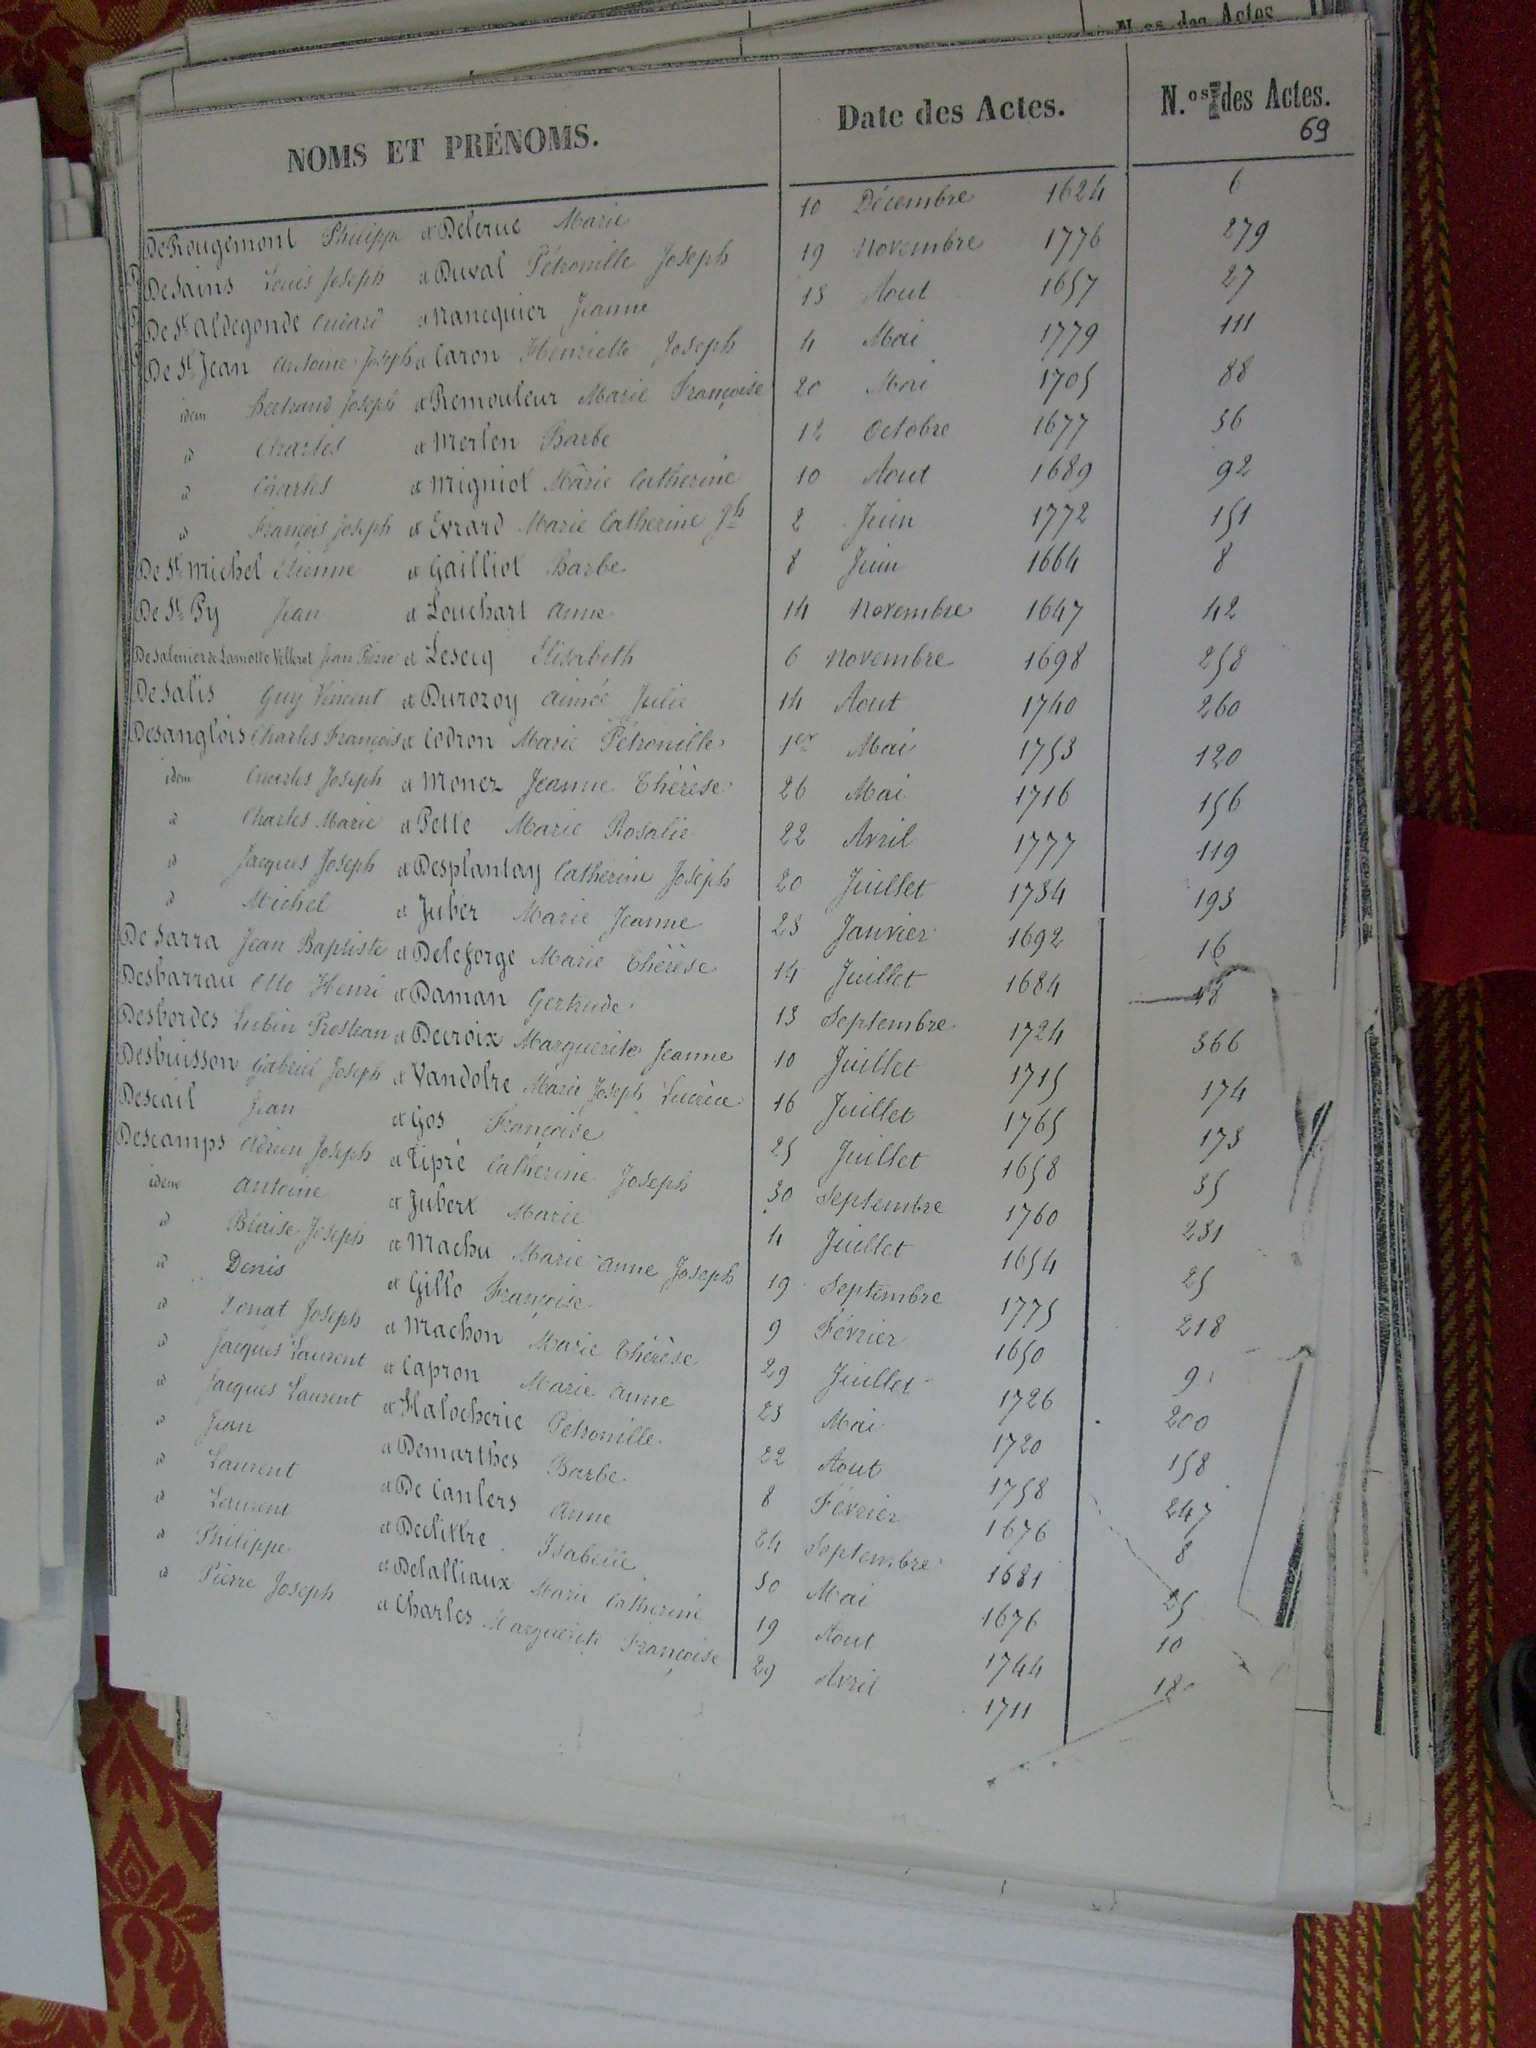 N.os des Actes
NOMS ET PRÉNOMS. Date des Actes. N.os des Actes.
69
De Rougemont Philippe et Delerue Marie 10 Décembre 1624 6
Desains Louis Joseph et Duval Pétronille Joseph 19 Novembre 1776 279
De St Aldegonde et Nancquier Jeanne 13 Aout 1657 27
De St Jean Antoine Joseph et Caron Henriette Joseph 4 Mai 1779 111
idem Bertrand Joseph et Remouleur Marie Françoise 20 Mai 1705 88
id Charles et Merlen Barbe 12 Octobre 1677 36
id Charles et Migniot Marie Catherine 10 Aout 1689 92
id François Joseph et Evrard Marie Catherine Jh 2 Juin 1772 151
De St Michel Etienne et Gailliot Barbe 8 Juin 1664 8
De St Py Jean et Louchart Anne 14 Novembre 1647 42
Desalenier de Lamotte Villeret Jean Pierre et Lesecq Elisabeth 6 Novembre 1698 258
Desalis Guy Vincent et Durozoy Aimée Julie 14 Aout 1740 260
Desanglois Charles François et Codron Marie Pétronille 1er Mai 1753 120
idem Charles Joseph et Monez Jeanne Thérèse 26 Mai 1716 156
id Charles Marie et Pette Marie Rosalie 22 Avril 1777 119
id Jacques Joseph et Desplantay Catherine Joseph 20 Juillet 1734 193
id Michel et Juber Marie Jeanne 23 Janvier 1692 16
De Sarra Jean Baptiste et Deleforge Marie Thérèse 14 Juillet 1684 48
Desbarrau Otto Henri et Daman Gertrude 13 Septembre 1724 366
Desbordes Lubin Prostean et Decroix Marguerite Jeanne 10 Juillet 1715 174
Desbuisson Gabriel Joseph et Vandolre Marie Joseph Lucrèce 16 Juillet 1765 173
Descail Jean et Gos Françoise 25 Juillet 1658 35
Descamps Adrien Joseph et Tipré Catherine Joseph 30 Septembre 1760 231
idem Antoine et Jubert Marie 4 Juillet 1654 25
id Blaise Joseph et Machu Marie Anne Joseph 19 Septembre 1775 218
id Denis et Gillo Françoise 9 Février 1650 9
id Donat Joseph et Machon Marie Thérèse 29 Juillet 1726 200
id Jacques Laurent et Capron Marie Anne 23 Mai 1720 158
id Jacques Laurent et Halocherie Pétronille 22 Aout 1758 247
id Jean et Demarthes Barbe 8 Février 1676 8
id Laurent et De Canlers Anne 24 Septembre 1681 25
id Laurent et Declittre Isabelle 30 Mai 1676 10
id Philippe et Delalliaux Marie Catherine 19 Aout 1744 18
id Pierre Joseph et Charles Marguerite Françoise 29 Avril 1711